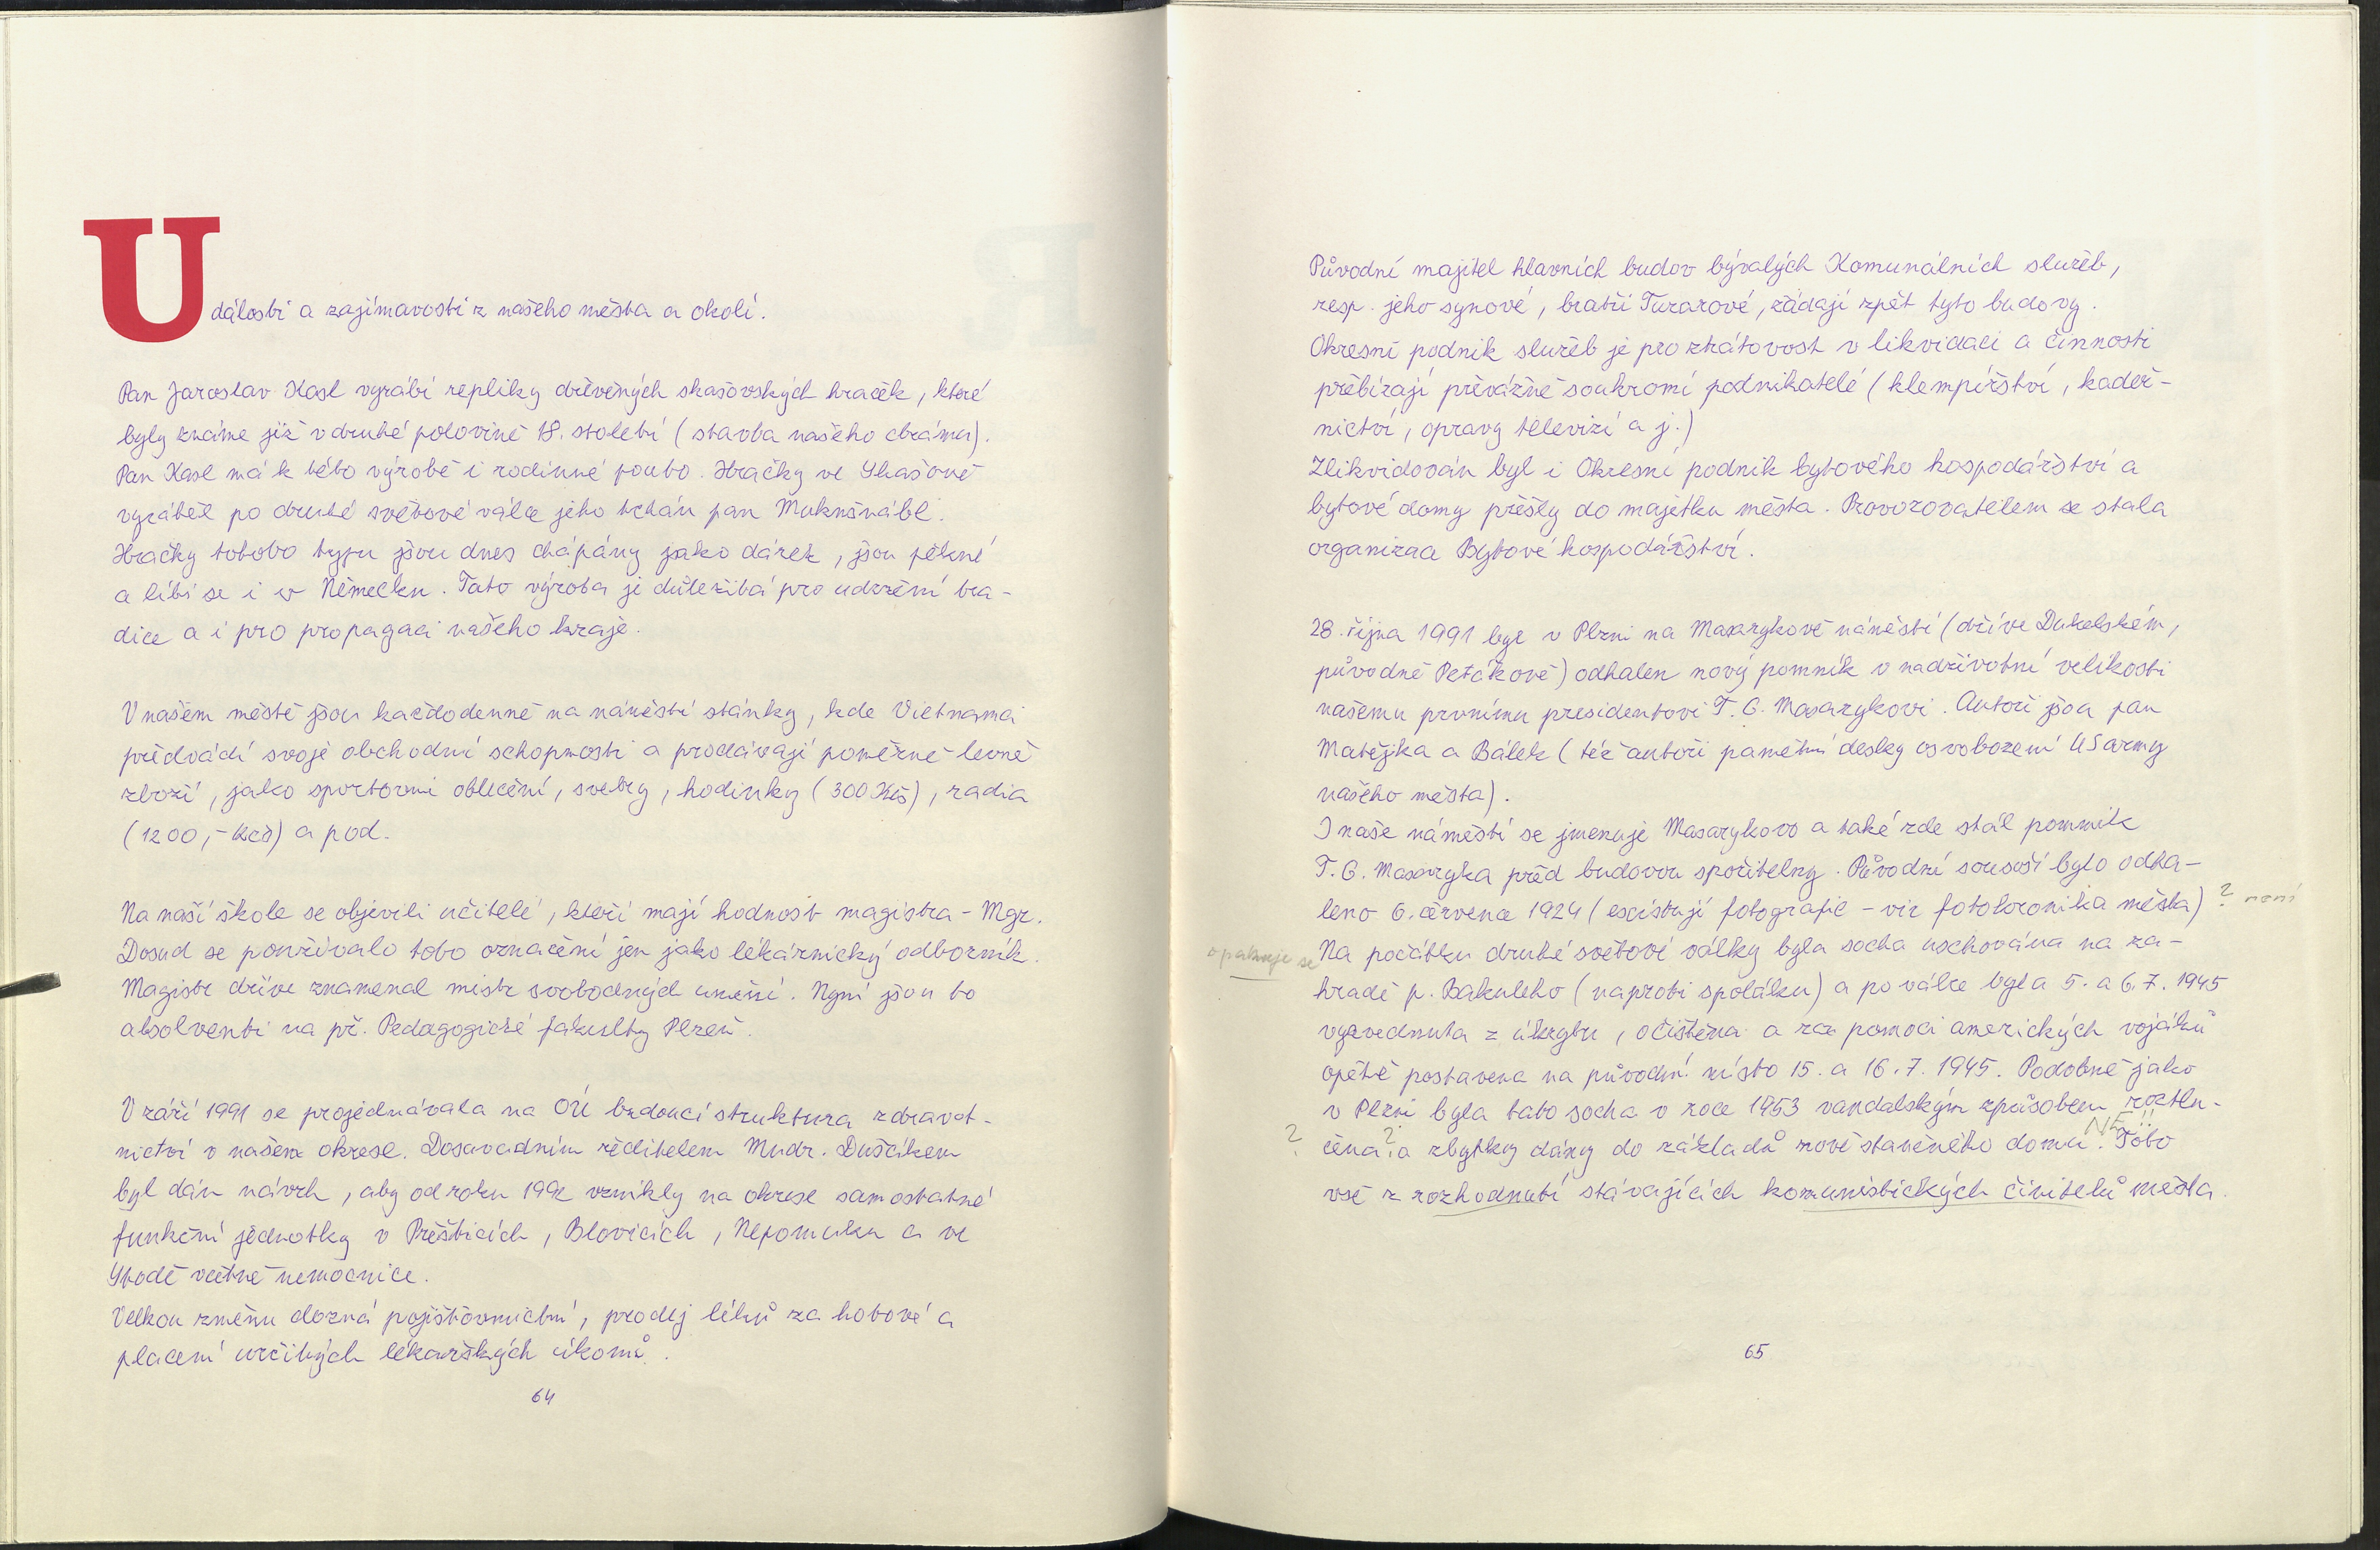 Události a zajímavosti z našeho města a okolí.
Pan Jaroslav Kasl vyrábí repliky dřevěných skašovských hraček, které
byly známe již v druhé polovině 18. století (stavba našeho chrámu).
Pan Kasl má k této výrobě i rodinné pouto. Hračky ve Skašově
vyráběl po druhé světové válce jeho tchán pan Muknšnábl.
Hračky tohoto typu jsou dnes chápány jako dárek, jsou pěkné
a líbí se i v Německu. Tato výroba je důležitá pro udržení tra-
dice a i pro propagaci našeho kraje.
V našem městě jsou každodenně na náměstí stánky, kde Vietnamci
předvádí svoje obchodní schopnosti a prodávají poměrně levné
zboží, jako sportovní oblečení, svetry, hodinky (300 Kčs), radia
(1200,- Kčs) a pod.
Na naší škole se objevili učitelé, kteří mají hodnost magistra - Mgr.
Dosud se používalo toto označení jen jako lékárnický odborník.
Magistr dříve znamenal mistr svobodných umění. Nyní jsou to
absolventi na př. Pedagogické fakulty Plzeň.
V září 1991 se projednávala na OÚ budoucí struktura zdravot-
nictví v našem okrese. Dosavadním ředitelem Mudr. Duščákem
byl dán návrh, aby od roku 1992 vznikly na okrese samostatné
funkční jednotky v Přešticích, Blovicích, Nepomuku a ve
Stodě včetně nemocnice.
Velkou změnu dozná pojišťovnictví, prodej léků za hotové a
placení určitých lékařských úkonů.
64
Původní majitel hlavních budov bývalých Komunálních služeb,
resp. jeho synové, bratři Turarové, žádají zpět tyto budovy.
Okresní podnik služeb je pro ztrátovost v likvidaci a činnosti
přebírají převážně soukromí podnikatelé (klempířství, kadeř-
nictví, opravy televizí a j.)
Zlikvidován byl i Okresní podnik bytového hospodářství a
bytové domy přešly do majetku města. Provozovatelem se stala
organizace Bytové hospodářství.
28. října 1991 byl v Plzni na Masarykově náměstí (dříve Dukelském,
původně Petákově) odhalen nový pomník v nadživotní velikosti
našemu prvnímu presidentovi T. G. Masarykovi. Autoři jsou pan
Matějka a Bálek (též autoři pamětní desky osvobození US army
našeho města).
I naše náměstí se jmenuje Masarykovo a také zde stál pomník
T. G. Masaryka před budovou spořitelny. Původní sousoší bylo odha-
leno 6. července 1924 (existují fotografie - viz fotokronika města) ? není
opakuje se Na počátku druhé světové války byla socha uschována na za-
hradě p. Bakuleho (naproti spolálku) a po válce byla 5. a 6. 7. 1945
vyzvednuta z úkrytu, očištěna a za pomoci amerických vojáků
opětě postavena na původní místo 15. a 16. 7. 1945. Podobně jako
v Plzni byla tato socha v roce 1953 vandalským způsobem roztlu-
? čena ? a zbytky dány do základů nově staveného domu. NE.. Toto
vše z rozhodnutí stávajících komunistických činitelů města.
65